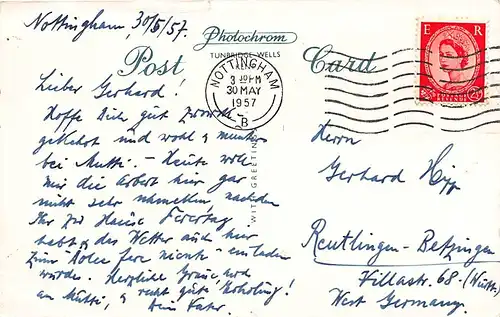 Nottingham, 30/5/57.
Photochrom
TUNBRIDGE WELLS
Post Card
E R
NOTTINGHAM
3 30 PM
30 MAY
1957
B
WITH GREETINGS
Lieber Gerhard!
Hoffe Dich gut zurück-
gekehrt und wohl & munter
bei Mutti. – Heute will
mir die Arbeit hier gar
nicht sehr schmecken, nachdem
Ihr zu Hause Feiertag
habt & das Wetter auch hier
zum "dolce far niente" einladen
würde. Herzliche Grüsse, auch
an Mutti, & recht gute Erholung!
Dein Vater.
Herrn
Gerhard
Reutlingen-Betzingen
Villastr. 68. (Württ.)
West Germany.